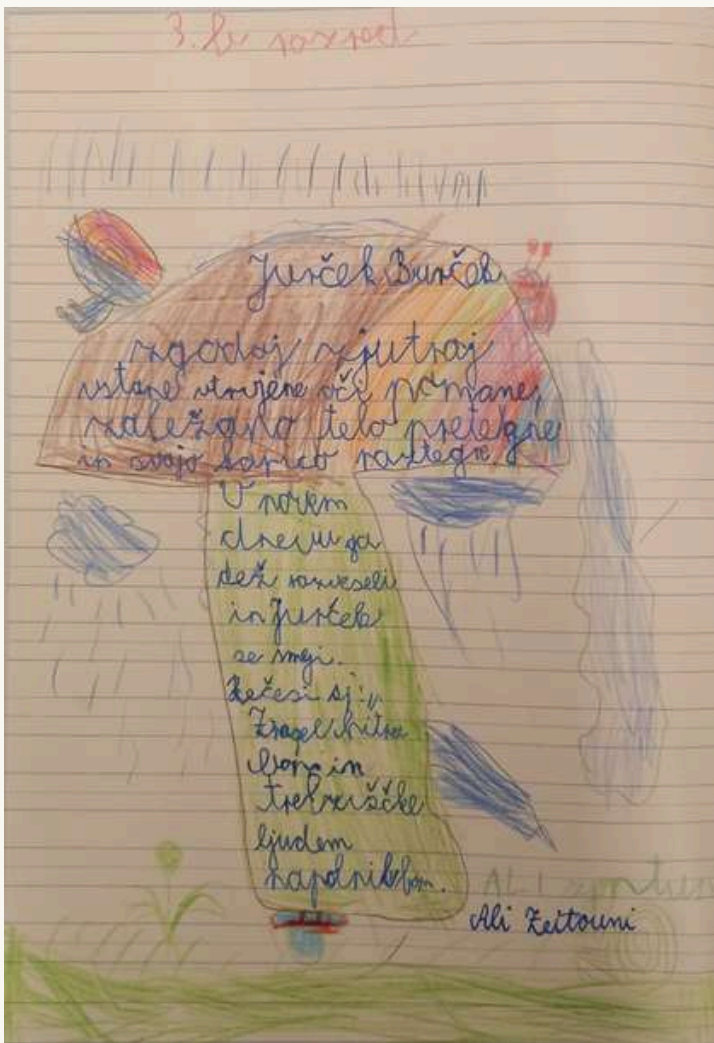 3. b razred
Jurček Burček
zgodaj zjutraj
vstane utrujene oči pomane,
zaležano telo pretegne
in svojo kapico raztegne.
V novem
dnevu ga
dež razveseli
in Jurček
se smeji.
Reče si:"
Zrasel hitro
bom in
trebuščke
ljudem
napolnil bom.
ALI
Ali Zeitouni